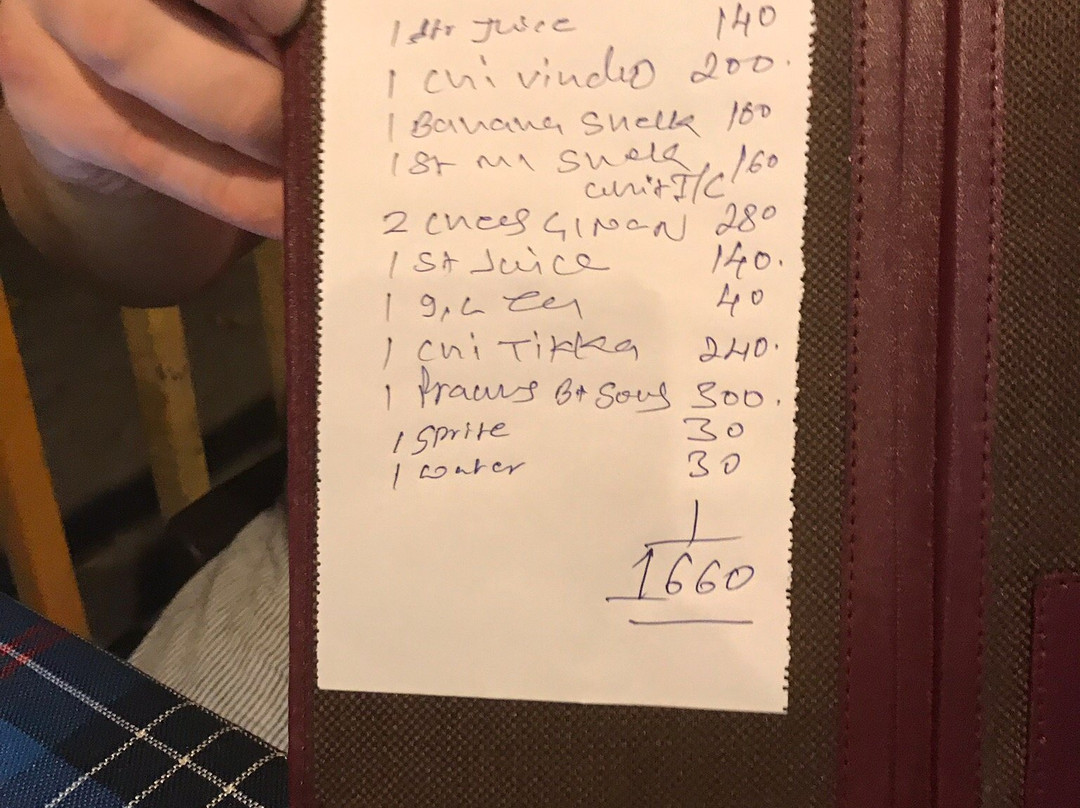 1 str Juice 140
1 chi vindlo 200.
1 Banana Shelk 100
1 St mn Shelk 160
whit I/C
2 chees GINAN 280
1 St Juice 140.
1 g,L tea 40
1 chi Tikka 240.
1 Prawns Bt Sous 300.
1 Sprite 30
1 water 30
1660